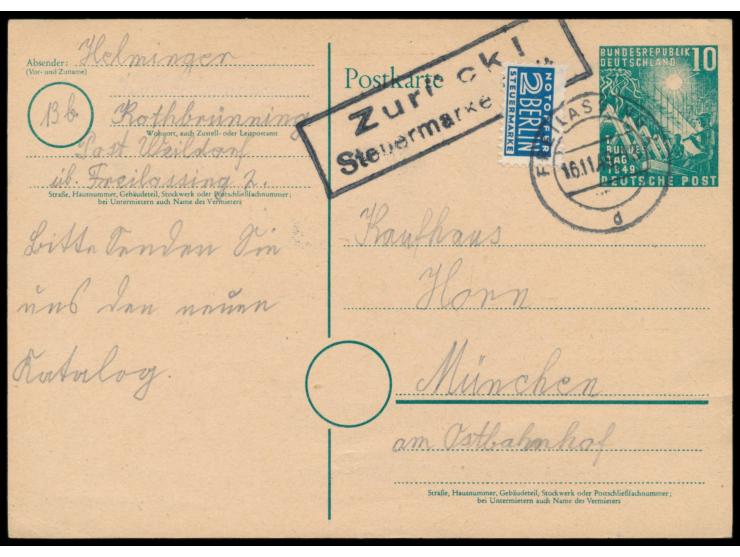 Absender: Helminger
(Vor- und Zuname)
13b Rothbrünning
Wohnort, auch Zustell- oder Leitpostamt
Post Weildorf
üb. Freilassing 2.
Straße, Hausnummer, Gebäudeteil, Stockwerk oder Postschließfachnummer;
bei Untermietern auch Name des Vermieters
Bitte Senden Sie
uns den neuen
Katalog.
Postkarte
Zurück!
Steuermarke
NOTOPFER
2 BERLIN
STEUERMARKE
BUNDESREPUBLIK
DEUTSCHLAND 10
BUNDES
TAG
1949
DEUTSCHE POST
16.11.
d
Kaufhaus
Horn
München
am Ostbahnhof
Straße, Hausnummer, Gebäudeteil, Stockwerk oder Postschließfachnummer;
bei Untermietern auch Name des Vermieters